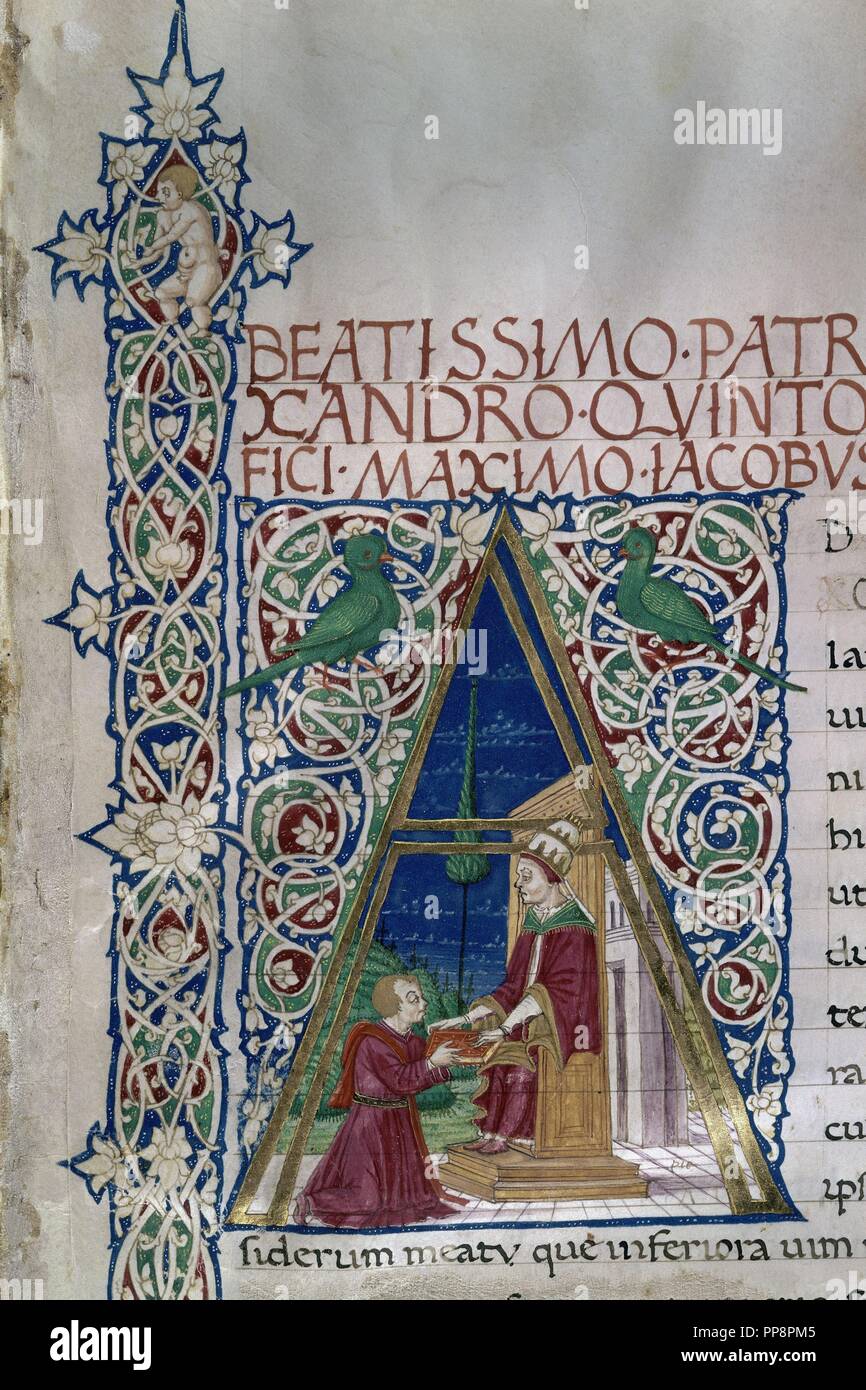 BEATISSIMO·PATR
XANDRO·QVINTO
FICI·MAXIMO·IACOBVS
D
XC
lat
ui
ni
hi
ut
du
ter
ra
cu
ips
siderum meatu que inferiora uim
alamy
Image ID: PP8PM5
www.alamy.com